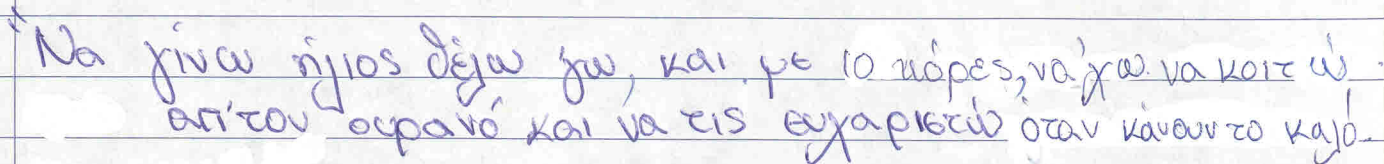 "Να γίνω ήλιος θέλω γω, και με 10 κόρες, να'χω να κοιτώ
απ'τον ουρανό και να τις ευχαριστώ όταν κάνουν το καλό